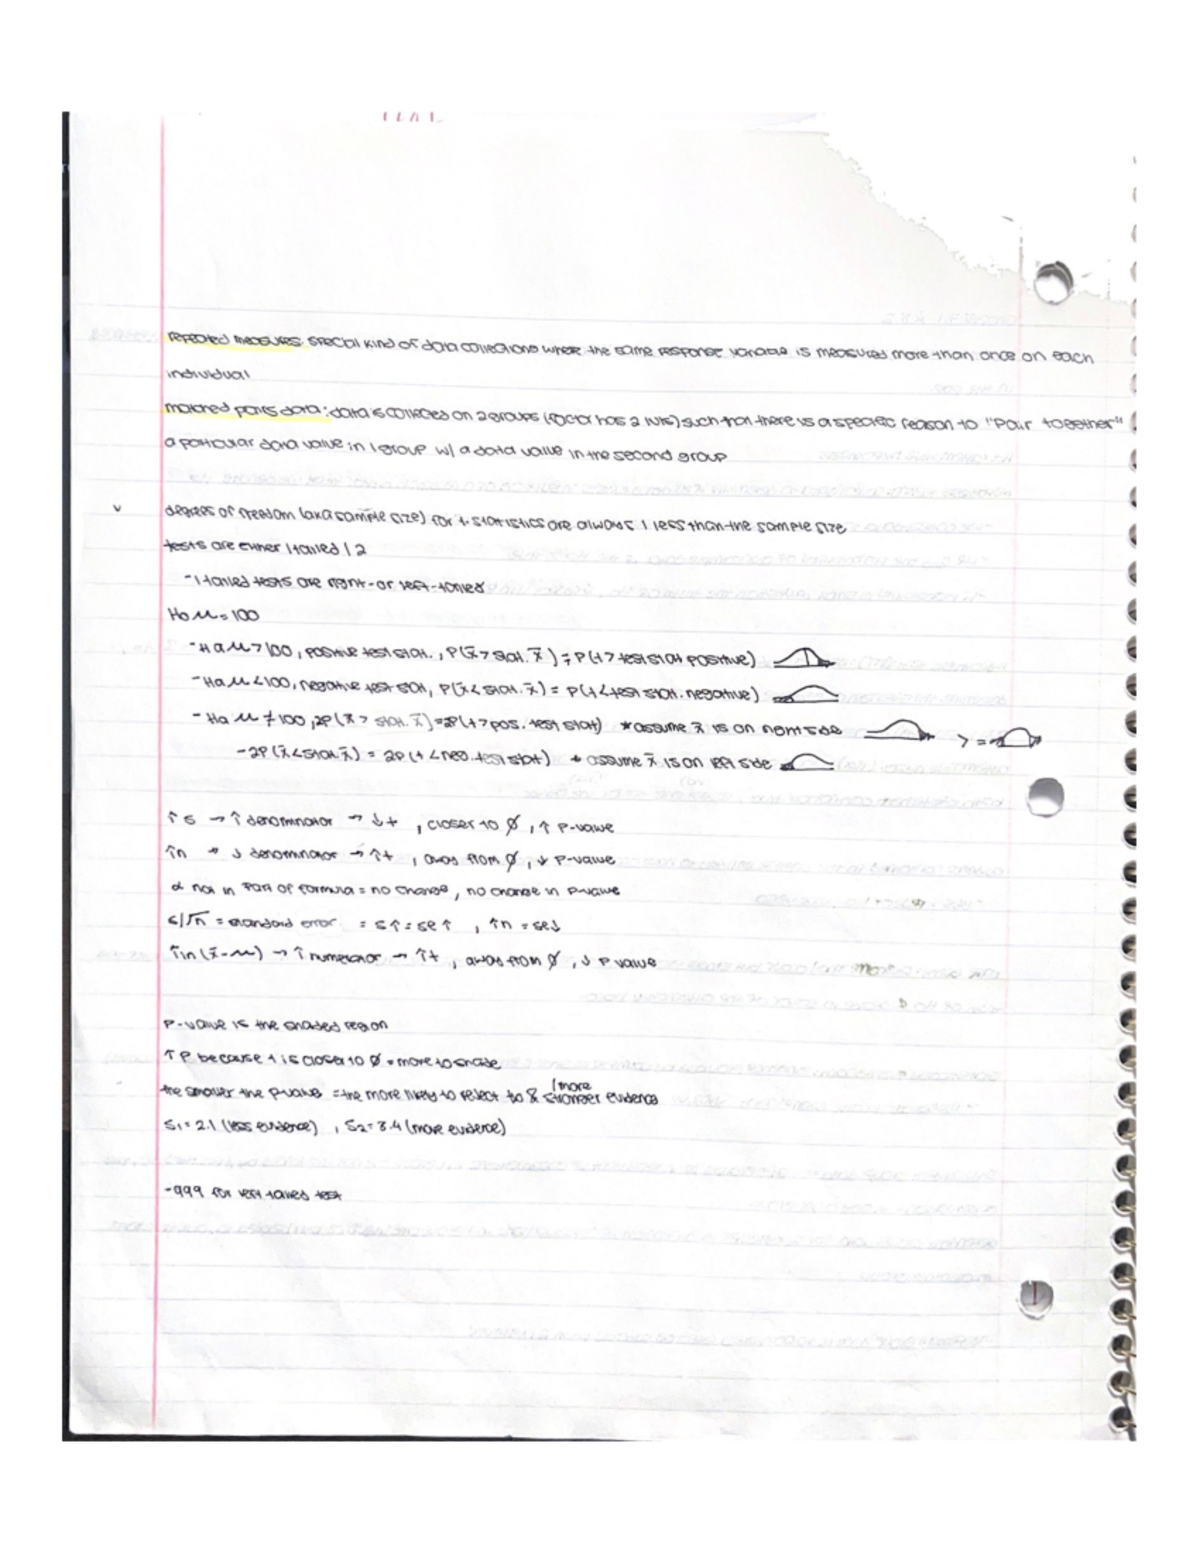 repeated measures: special kind of data collections where the same response variable is measured more than once on each
individual
matched pairs data: data is collected on 2 groups (factor has 2 lvls) such that there is a specific reason to "Pair together"
a particular data value in 1 group w/ a data value in the second group
degrees of freedom (aka sample size) for t-statistics are always 1 less than the sample size
tests are either 1 tailed / 2
- 1 tailed tests are right- or left-tailed
Ho μ = 100
- Ha μ > 100, positive test stat., P(x̄ > stat. x̄) = P(t > test stat positive)
- Ha μ < 100, negative test stat, P(x̄ < stat. x̄) = P(t < test stat. negative)
- Ha μ ≠ 100, 2P(x̄ > stat. x̄) = 2P(t > pos. test stat) * assume x̄ is on right side > =
- 2P(x̄ < stat. x̄) = 2P(t < neg. test stat) * assume x̄ is on left side
↑ s → ↑ denominator → ↓ t, closer to Ø, ↑ P-value
↑n → ↓ denominator → ↑t, away from Ø, ↓ P-value
α not in part of formula = no change, no change in P-value
s/√n = standard error = s↑ = se↑, ↑n = se↓
↑in (x̄-μ) → ↑ numerator → ↑t, away from Ø, ↓ P value
P-value is the shaded region
↑ P because t is closer to Ø = more to shade
the smaller the P-value = the more likely to reject to & (more stronger evidence
S₁ = 2.1 (less evidence), S₂ = 3.4 (more evidence)
-999 for left tailed test